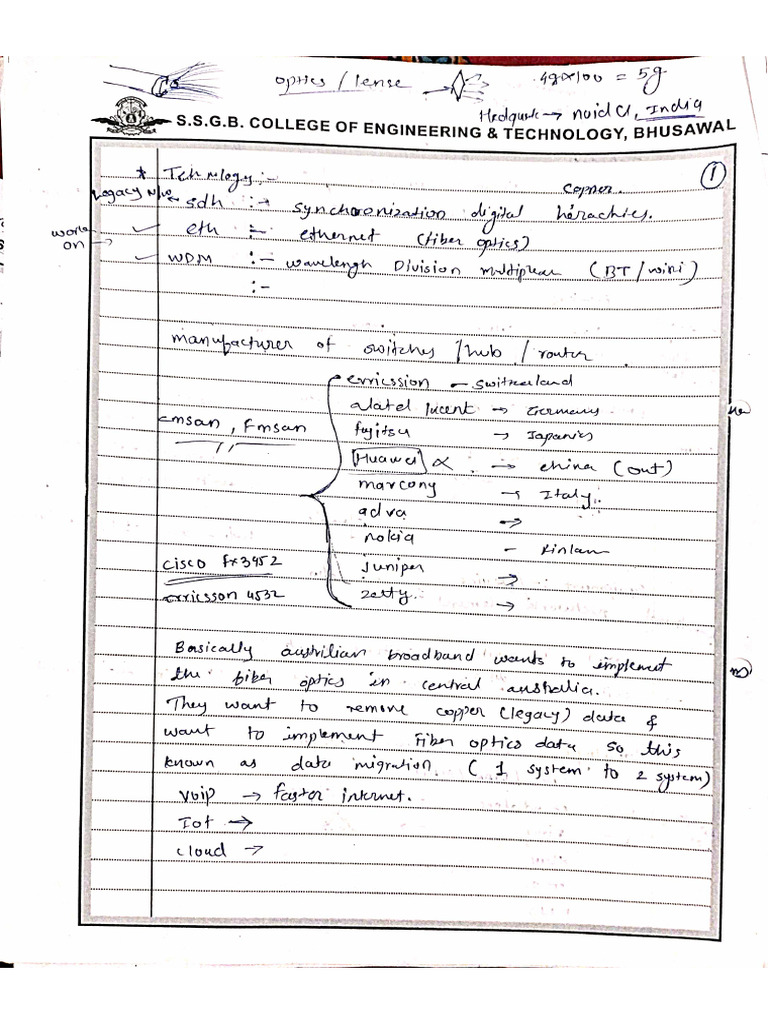 optics / lense
4g×100 = 5g
Hedquate → noida, India
S.S.G.B. COLLEGE OF ENGINEERING & TECHNOLOGY, BHUSAWAL
1
* Tchnology :-
copper.
Legacy
sdh :→ synchronization digital hierachies.
work on →
✓ eth :- ethernet (fiber optics)
✓ WDM :- wavelengh Division multiplexer (BT/wini)
:-
manufacturer of switches / hub / router
erricssion - switzerland
alatel lucent → Germany
emsan, Fmsan
fujitsu → Japanies
Huawei × :→ china (out)
marcony → Italy.
adva →
nokia - Finlan
cisco fx3952
juniper →
erricsson 4532
zetty. →
Basically austrilian broadband wants to implement
the fiber optics in central australia.
They want to remove copper (legacy) data &
want to implement Fiber optics data so this
known as data migration. (1 system to 2 system)
VOIP → faster internet.
Iot →
cloud →